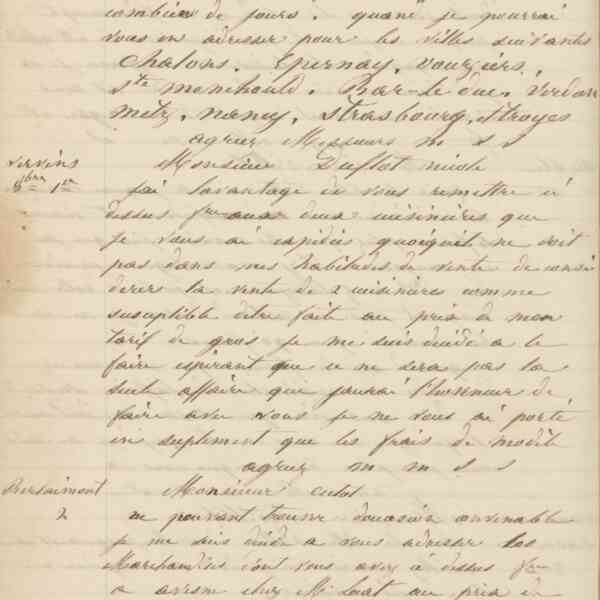 combien de jours. quand je pourrai
vous en adresser pour les villes suivantes
Chalons. Epernay, vouziers,
Ste menehould. Bar-le duc. Verdun
metz. nancy, Strasbourg, troyes
agreez Messieurs m s s
vervins
8bre 1er
Monsieur Duflot nicole
jai lavantage de vous remettre ci
dessus fre aux deux cuisinières que
je vous ai expédiés quoiquil ne soit
pas dans mes habitudes de vente de consi
derer la vente de 2 cuisinières comme
suseptible detre faite au prix de mon
tarif de gros je me suis décidé a le
faire espirant que ce ne sera pas la
seule affaire que jaurai l'honneur de
faire avec vous je ne vous ai porté
en suplement que les frais de modèle
agreez m m s s
Berlaimont
2
Monsieur culot
ne pouvant trouver doccasion convenable
je me suis décidé a vous adresser les
Marchandises dont vous avez ci dessus fre
a avesne chez Mr au prix de